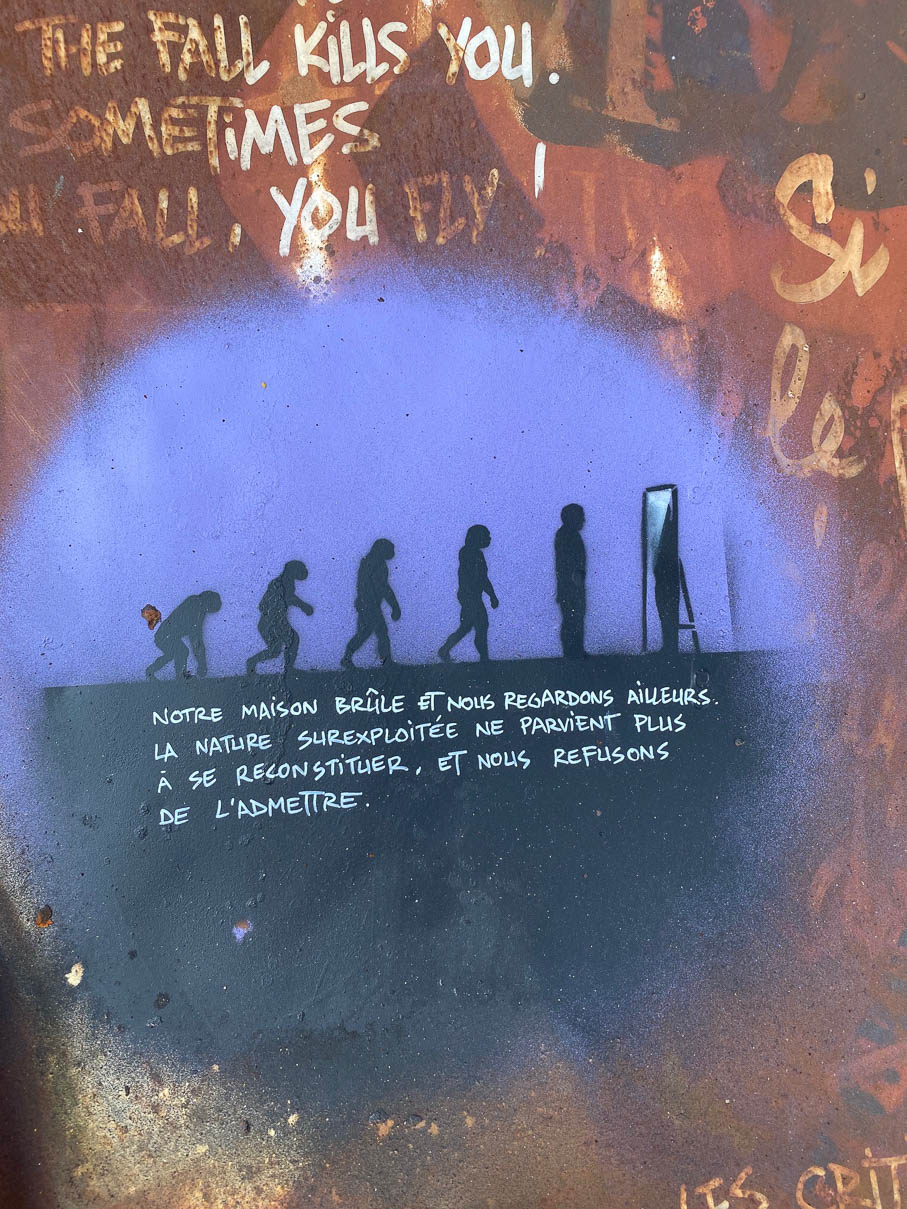 THE FALL KILLS YOU.
SOMETIMES
FALL, YOU FLY
Si
le
NOTRE MAISON BRÛLE ET NOUS REGARDONS AILLEURS.
LA NATURE SUREXPLOITÉE NE PARVIENT PLUS
À SE RECONSTITUER, ET NOUS REFUSONS
DE L'ADMETTRE.